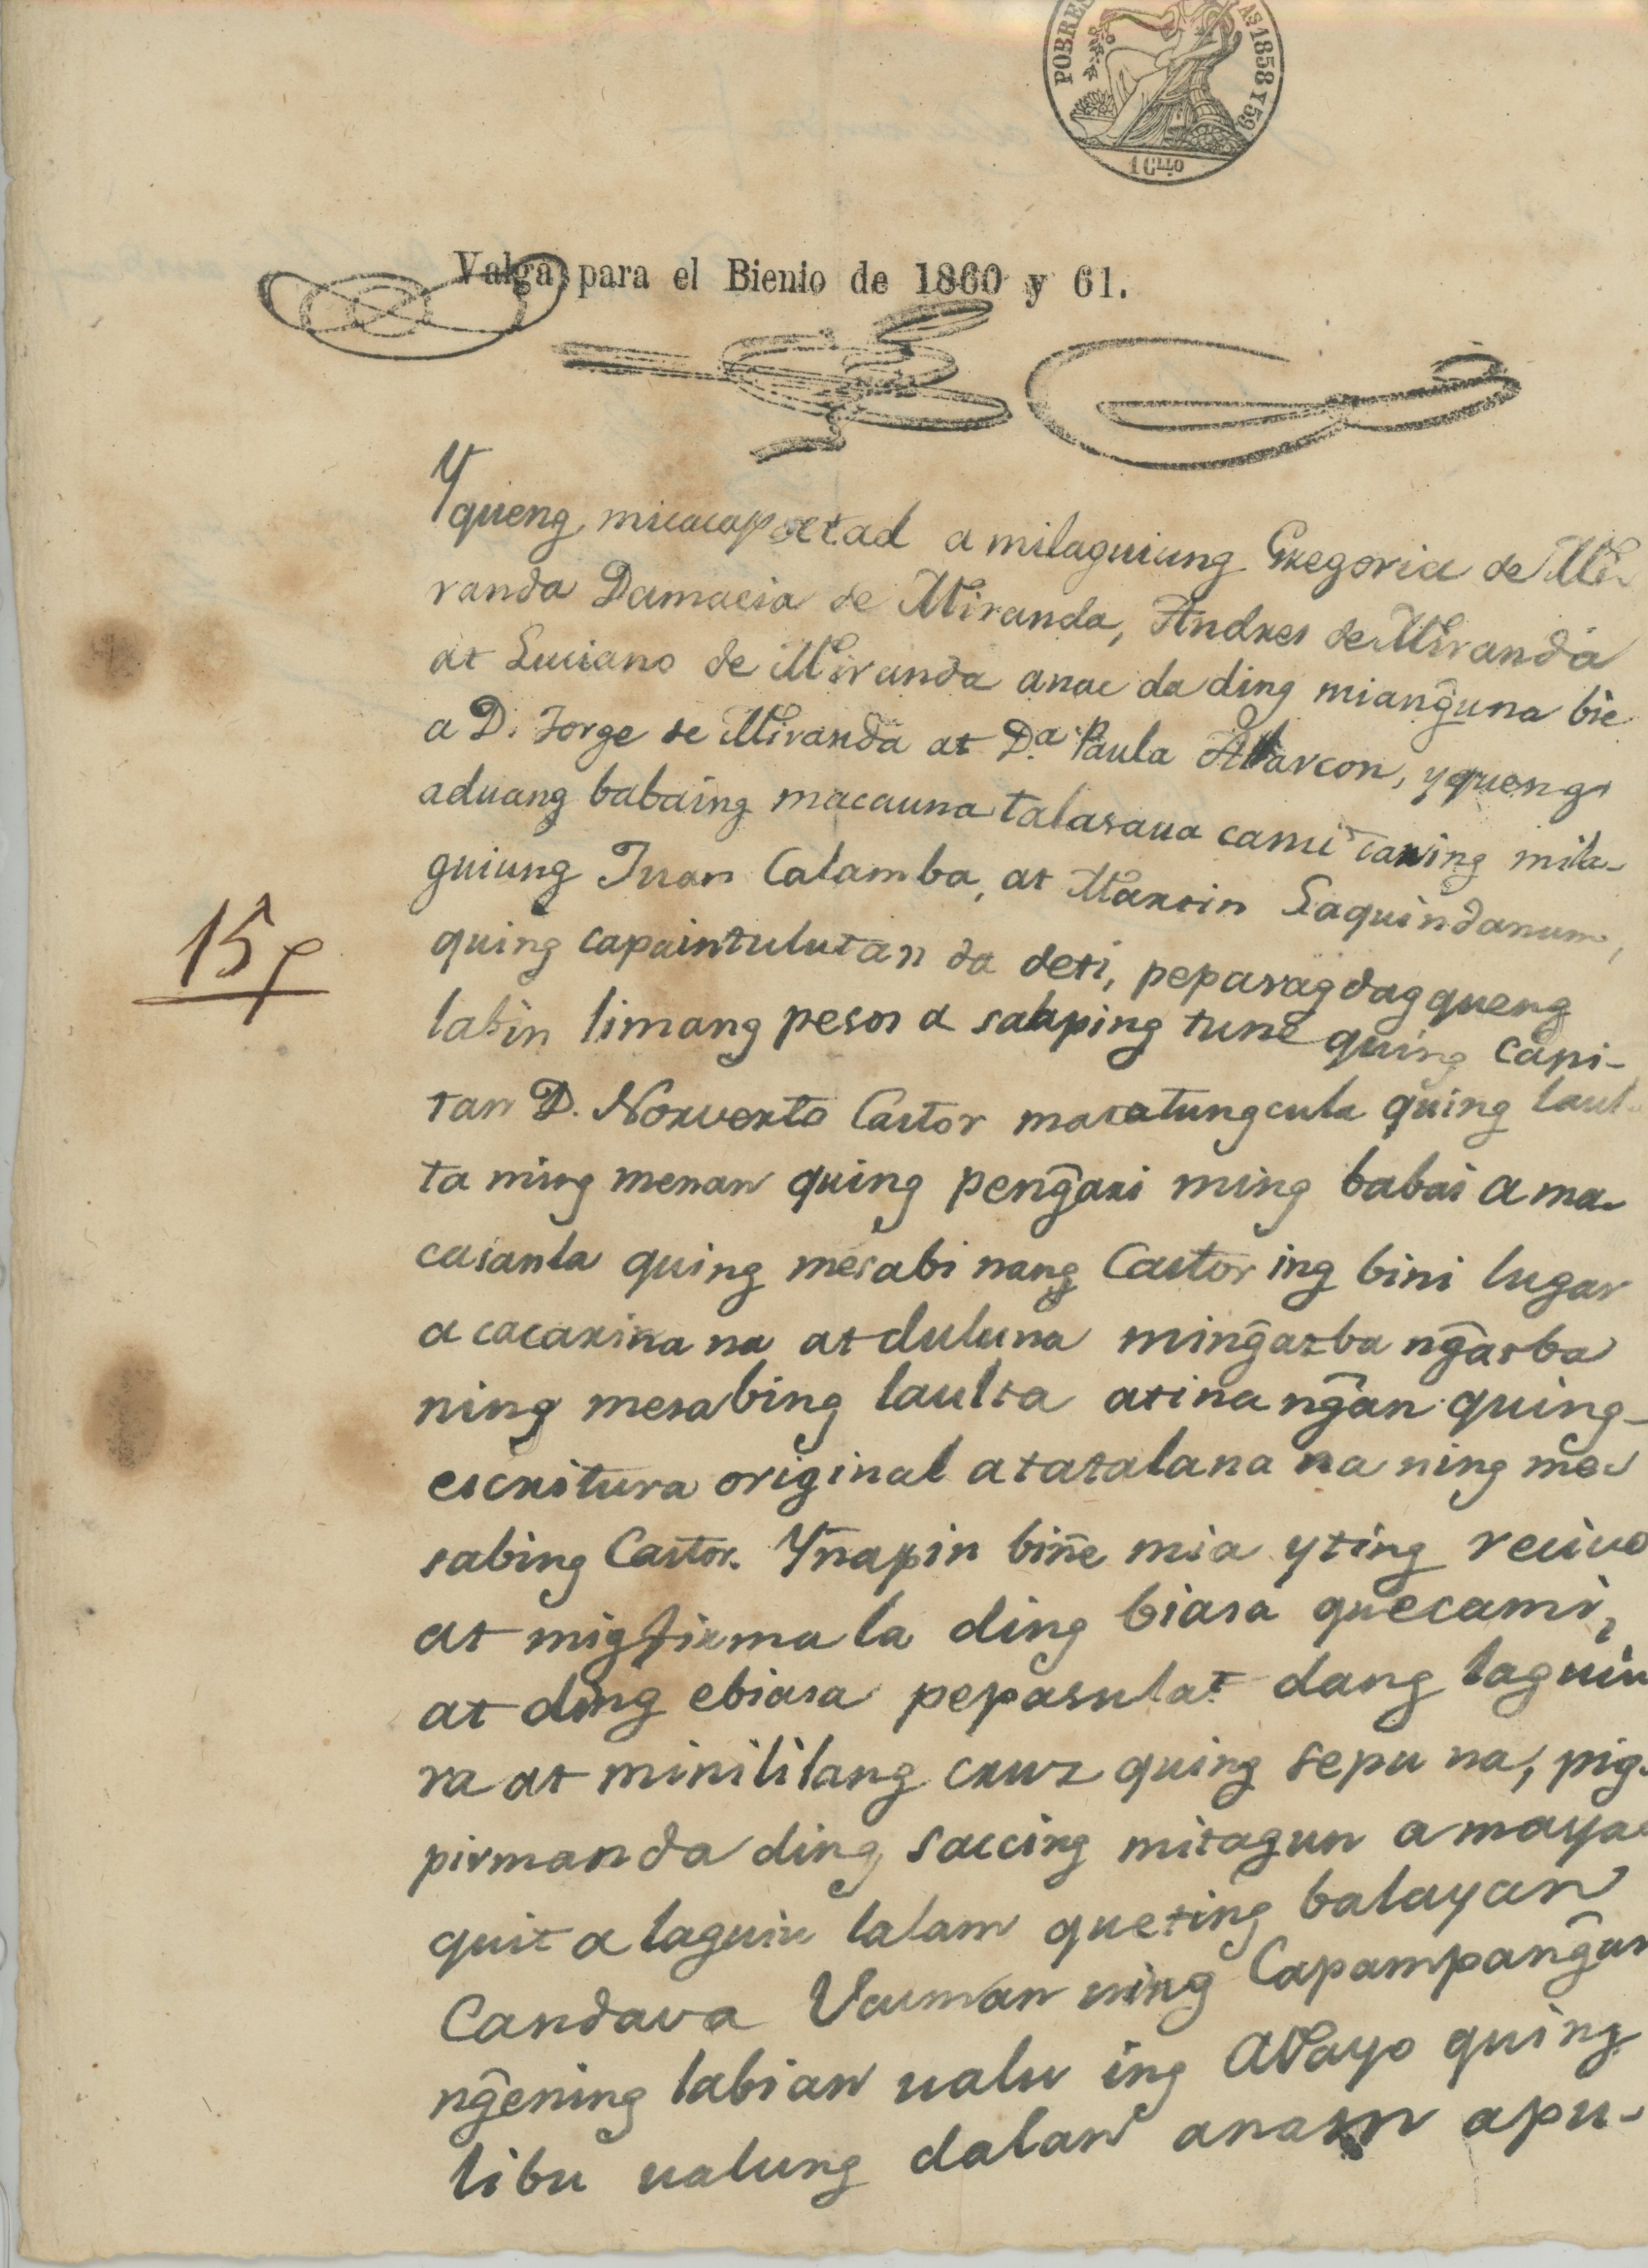 POBRES AS 1858 Y 59
1 Cllo
Valga para el Bienio de 1860 y 61.
Yqueng micacapatad a milaguiung Gregoria de Mi-
randa Damacia de Miranda, Andres de Miranda
at Luciano de Miranda anac da ding miang̃una bie
a D. Jorge de Miranda at D.ª Paula Alarcon, yqueng
aduang babaing macauna talasaua cami caring mila-
guiung Juan Calamba, at Martin Laquindanum,
quing capaintulutan da deti, peparagdag queng
labin limang pesos a salaping tune quing Capi-
tan D. Norverto Castor macatungcula quing laul-
ta ning menan quing peng̃ari ming babai a ma-
casanla quing mesabi nang Castor ing bini lugar
a cacarinan na at duluna ming̃atba ng̃atba
ning mesabing laulta atina ng̃an quing-
escritura original atatalana na ning me-
sabing Castor. Ynapin biñe mia yting recivo
at migfirma la ding biasa quecami,
at ding ebiasa pepasulat dang laguiu
ra at minililang cruz quing sepu na, pig-
pirman da ding saccing mitagun a maya-
quit a laguiu lalam queting balayan
Candava Uauman ning Capampang̃an
ng̃ening labian ualu ing Mayo quing
libu ualung dalan anam apu-
15 p